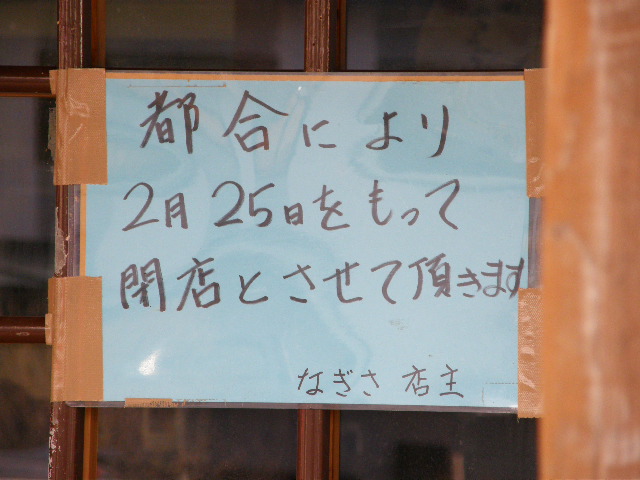 都合により
2月25日をもって
閉店とさせて頂きます
なぎさ 店主